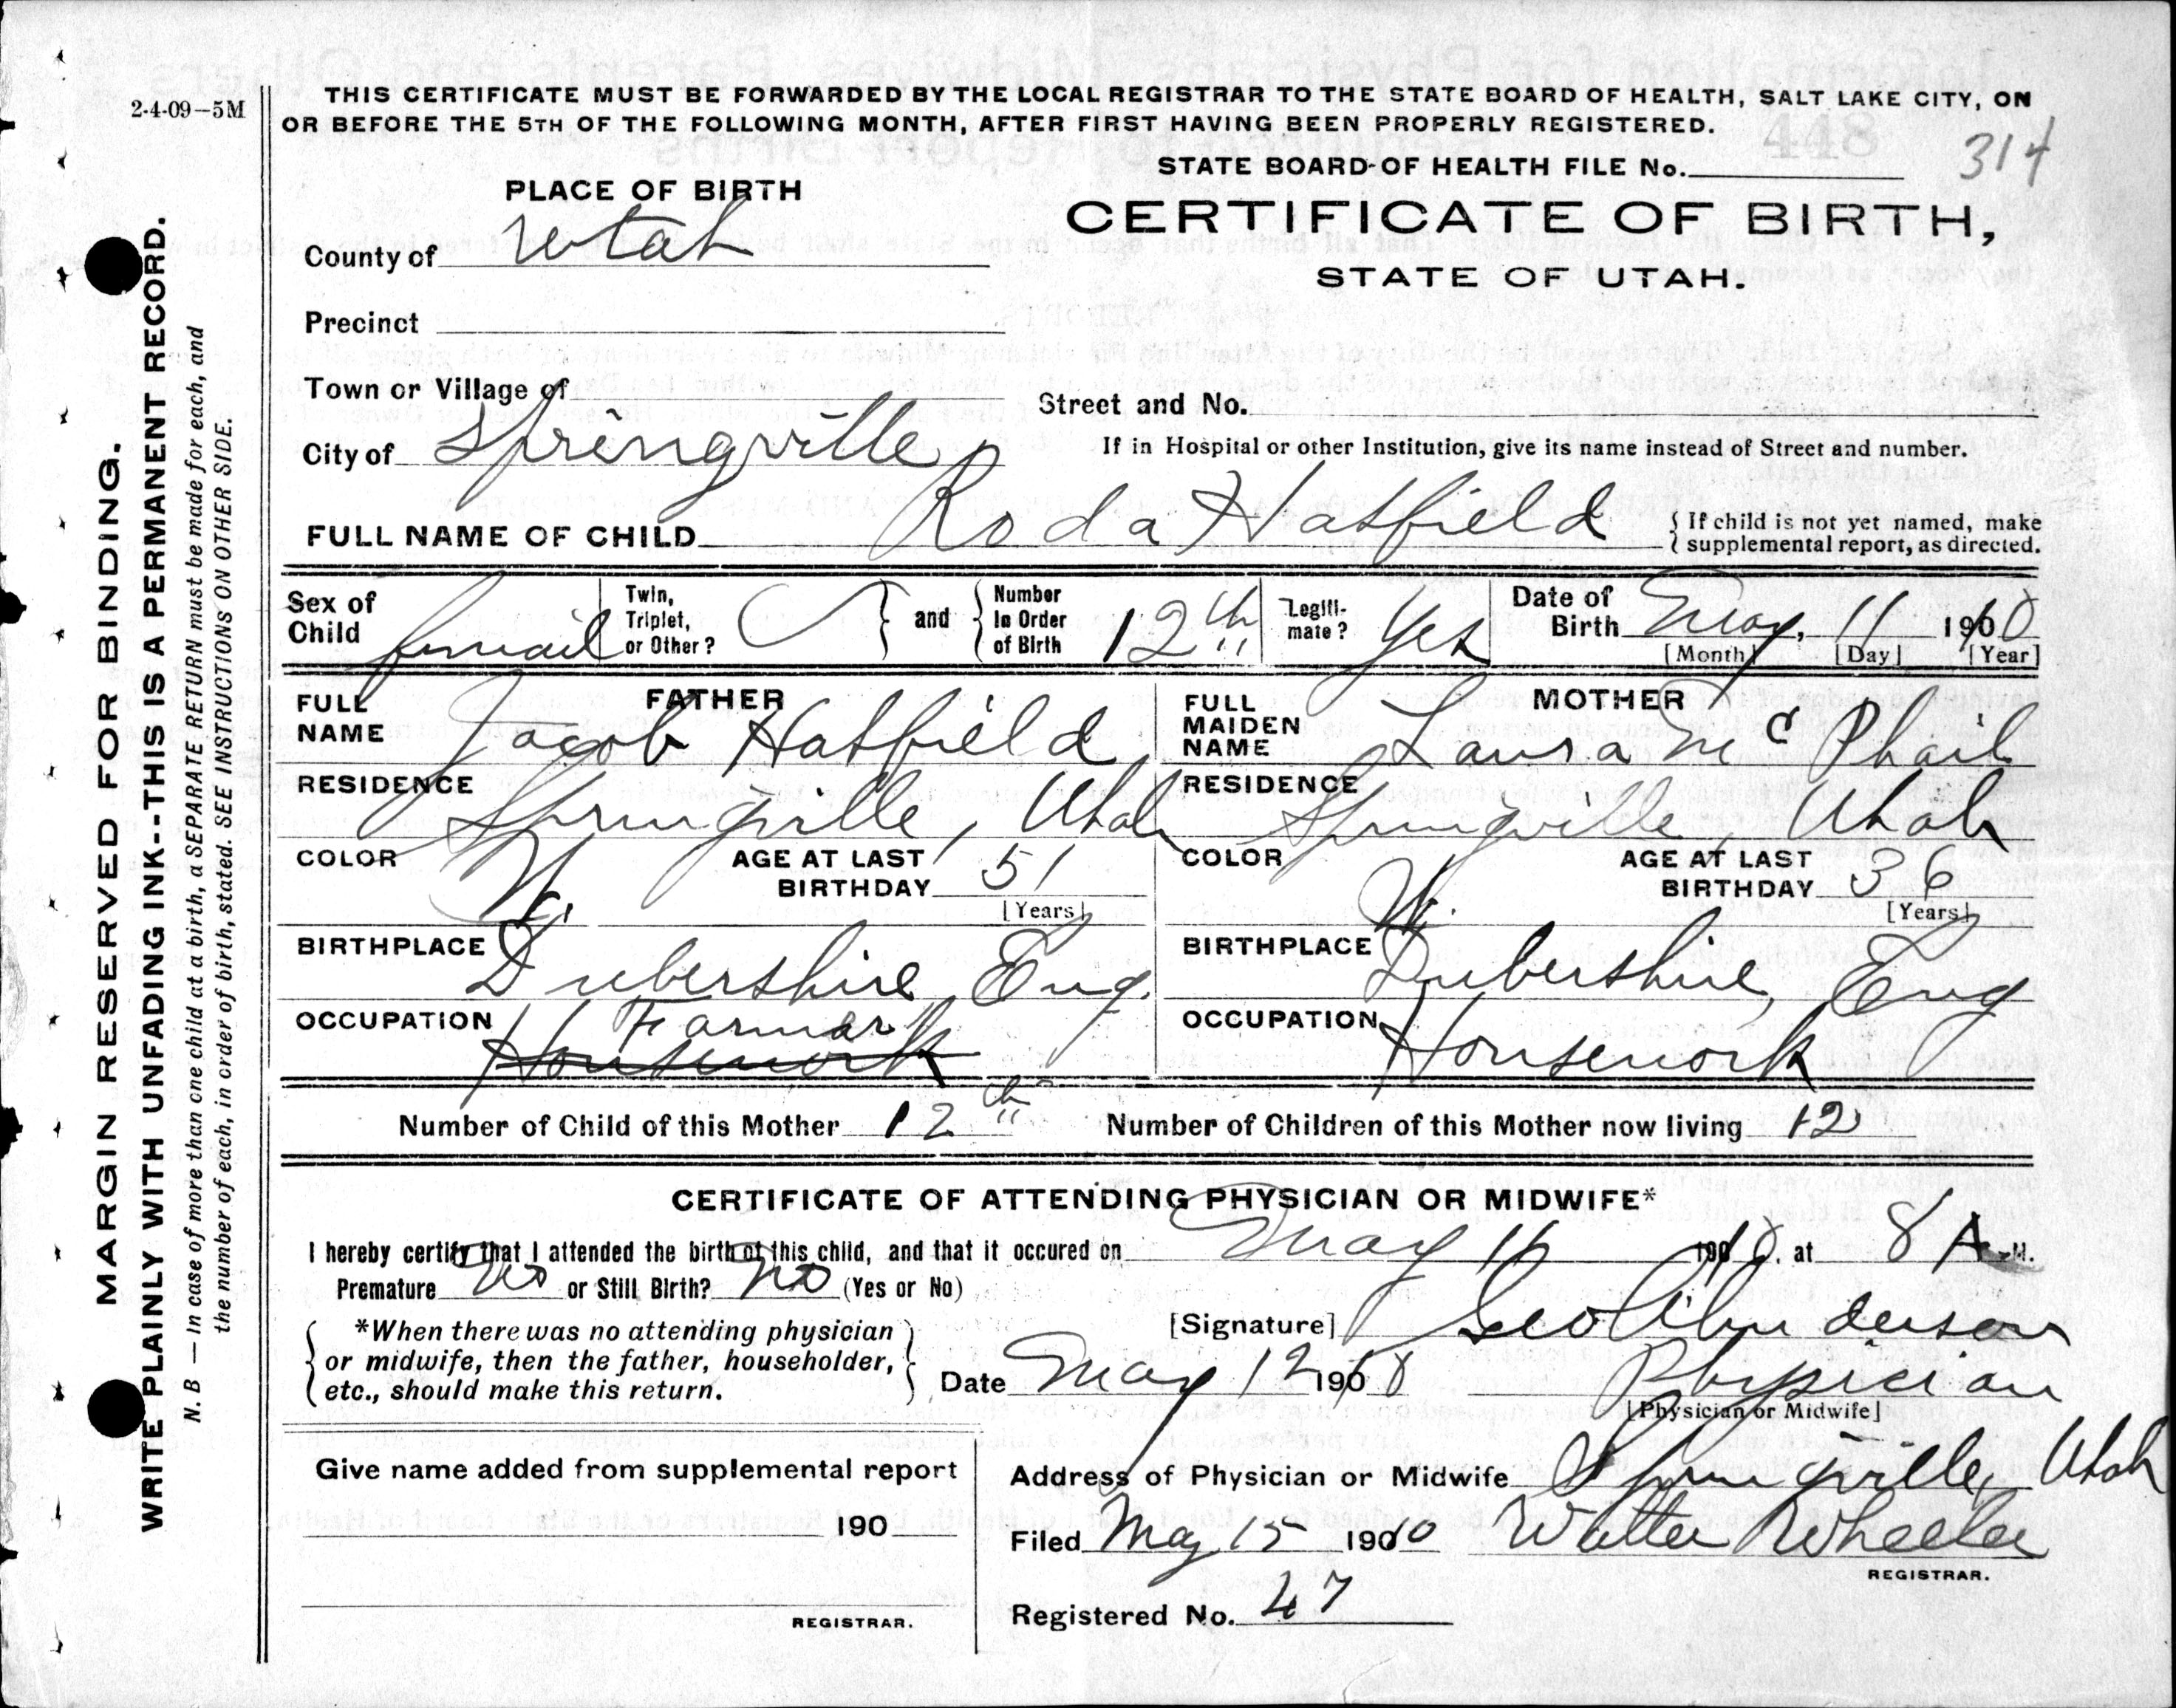 2-4-09-5M
THIS CERTIFICATE MUST BE FORWARDED BY THE LOCAL REGISTRAR TO THE STATE BOARD OF HEALTH, SALT LAKE CITY, ON
OR BEFORE THE 5TH OF THE FOLLOWING MONTH, AFTER FIRST HAVING BEEN PROPERLY REGISTERED.
448
314
STATE BOARD OF HEALTH FILE No.
PLACE OF BIRTH
CERTIFICATE OF BIRTH,
STATE OF UTAH.
County of Utah
Precinct
Town or Village of
Street and No.
City of Springville
If in Hospital or other Institution, give its name instead of Street and number.
FULL NAME OF CHILD Roda Hatfield
{ If child is not yet named, make
supplemental report, as directed.
Sex of Child femail
Twin, Triplet, or Other?
and
Number in Order of Birth 12th
Legitimate? Yes
Date of Birth May, 11 1910
[Month] [Day] [Year]
FATHER
FULL NAME Jacob Hatfield
MOTHER
FULL MAIDEN NAME Laura Mc Phail
RESIDENCE Springville, Utah
RESIDENCE Springville, Utah
COLOR W. AGE AT LAST BIRTHDAY 51 [Years]
COLOR W. AGE AT LAST BIRTHDAY 36 [Years]
BIRTHPLACE Dubershire Eng.
BIRTHPLACE Dubershire, Eng
OCCUPATION Farmer
Housework
OCCUPATION Housework
Number of Child of this Mother 12th
Number of Children of this Mother now living 12
CERTIFICATE OF ATTENDING PHYSICIAN OR MIDWIFE*
I hereby certify that I attended the birth of this child, and that it occured on May 11 1910, at 8 A M.
Premature No or Still Birth? No (Yes or No)
*When there was no attending physician
or midwife, then the father, householder,
etc., should make this return.
[Signature] Geo
Date May 12 1910
Physician
[Physician or Midwife]
Give name added from supplemental report
190
REGISTRAR.
Address of Physician or Midwife Springville, Utah
Filed May 15 1910 Walter Wheeler
REGISTRAR.
Registered No. 47
MARGIN RESERVED FOR BINDING.
WRITE PLAINLY WITH UNFADING INK--THIS IS A PERMANENT RECORD.
N. B — In case of more than one child at a birth, a SEPARATE RETURN must be made for each, and
the number of each, in order of birth, stated. SEE INSTRUCTIONS ON OTHER SIDE.